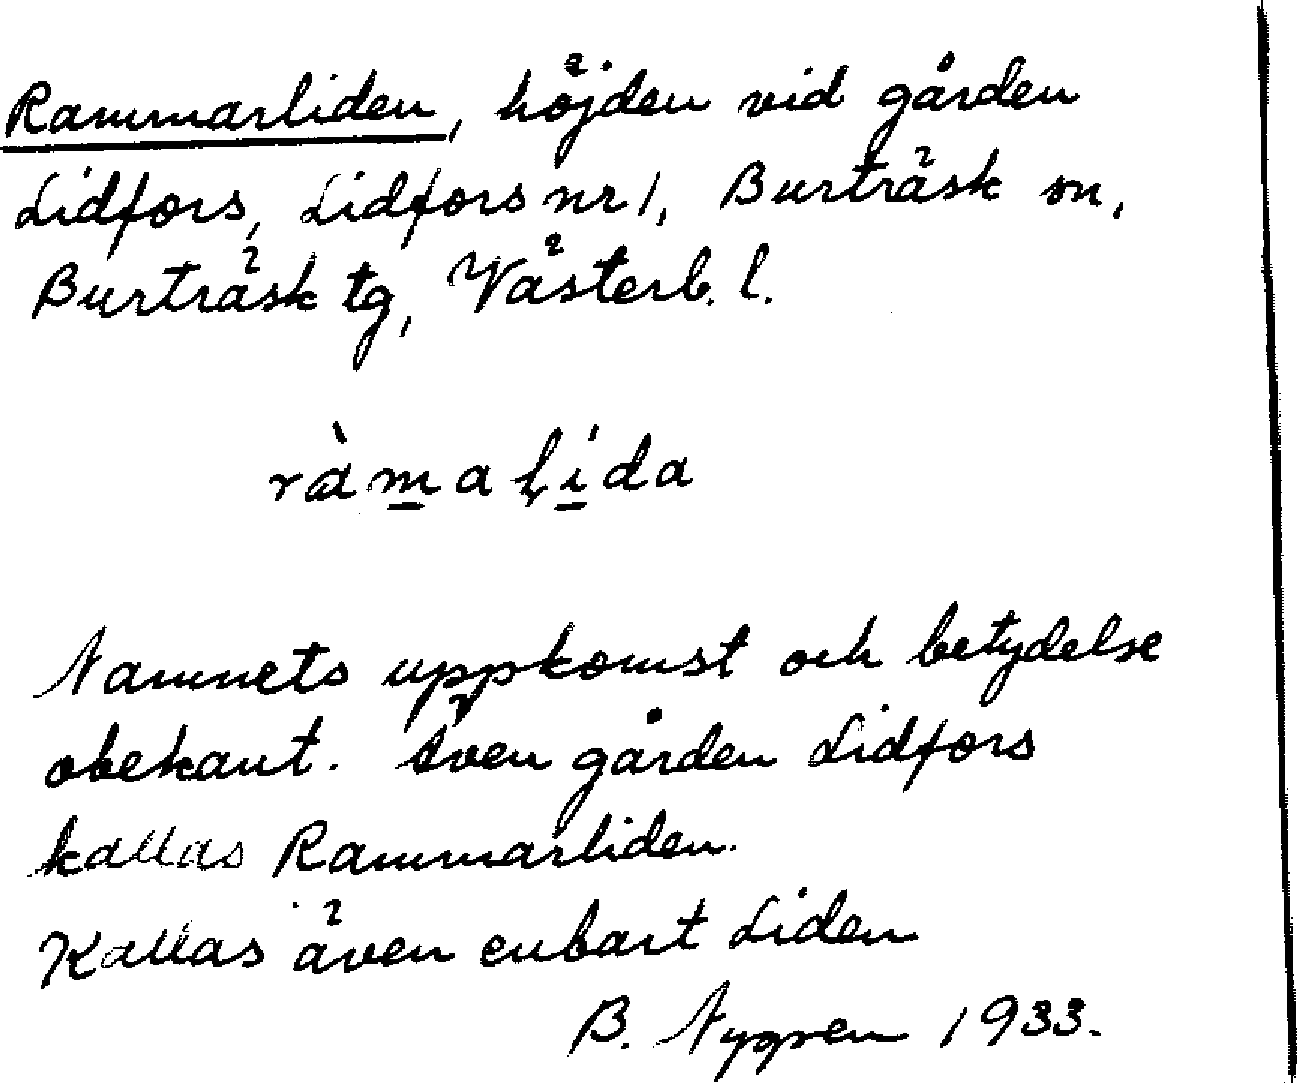 Rammarliden, höjden vid gården
Lidfors, Lidfors nr 1, Burträsk sn,
Burträsk tg, Västerb. l.
ràmaḷída
Namnets uppkomst och betydelse
obekant. Även gården Lidfors
kallas Rammarliden.
Kallas även enbart Liden
B. Nygren 1933.